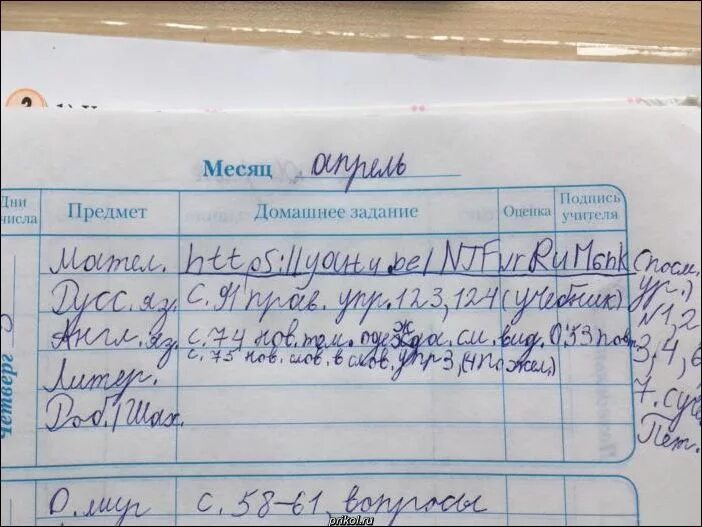 Месяц апрель
Дни числа Предмет Домашнее задание Оценка Подпись учителя
Матем. https://yayty.be/NJFvrRyM6nk (посм. ур.)
Русс. яз. с. 91 прав. упр. 123, 124 (учебник) №1,2
Англ. яз. с. 74 нов. тем. см. вид. 0,53 3, 4, 6
с. 75 нов. слов. в слов. упр 3, (4 по жел.)
Литер. 7.
Роб./Шах. Пет.
Четверг
О. мир с. 58-61, вопросы
prikol.ru